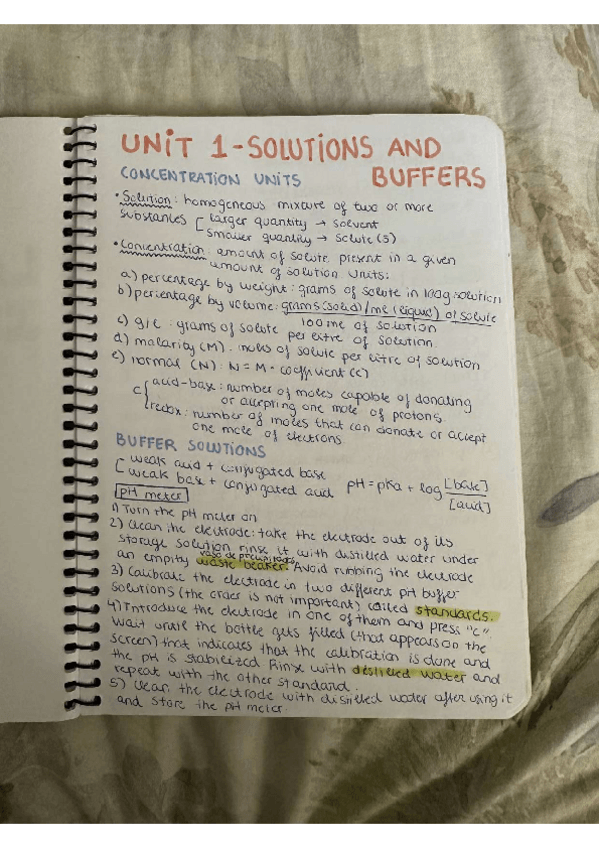 UNIT 1-SOLUTIONS AND
BUFFERS
CONCENTRATION UNITS
• Solution: homogeneous mixture of two or more
substances [ larger quantity → solvent
smaller quantity → solute(s)
• Concentration: amount of solute present in a given
amount of solution. Units:
a) percentage by weight: grams of solute in 100g solution
b) percentage by volume: grams (solid)/ml (liquid) of solute
100 ml of solution
c) g/L : grams of solute per litre of solution.
d) molarity (M): moles of solute per litre of solution
e) normal (N): N = M · coefficient (c)
c { acid-base: number of moles capable of donating
or accepting one mole of protons.
redox: number of moles that can donate or accept
one mole of electrons
BUFFER SOLUTIONS
[ weak acid + conjugated base
weak base + conjugated acid
pH = pKa + log [base]
[acid]
pH meter
1) Turn the pH meter on
2) Clean the electrode: take the electrode out of its
storage solution rinse it with distilled water under
vaso de precipitados
an empty waste beaker. Avoid rubbing the electrode
3) Calibrate the electrode in two different pH buffer
solutions (the order is not important) called standards.
4) Introduce the electrode in one of them and press "c".
Wait until the bottle gets filled (that appears on the
screen) that indicates that the calibration is done and
the pH is stabilized. Rinse with destilled water and
repeat with the other standard.
5) Clean the electrode with distilled water after using it
and store the pH meter.